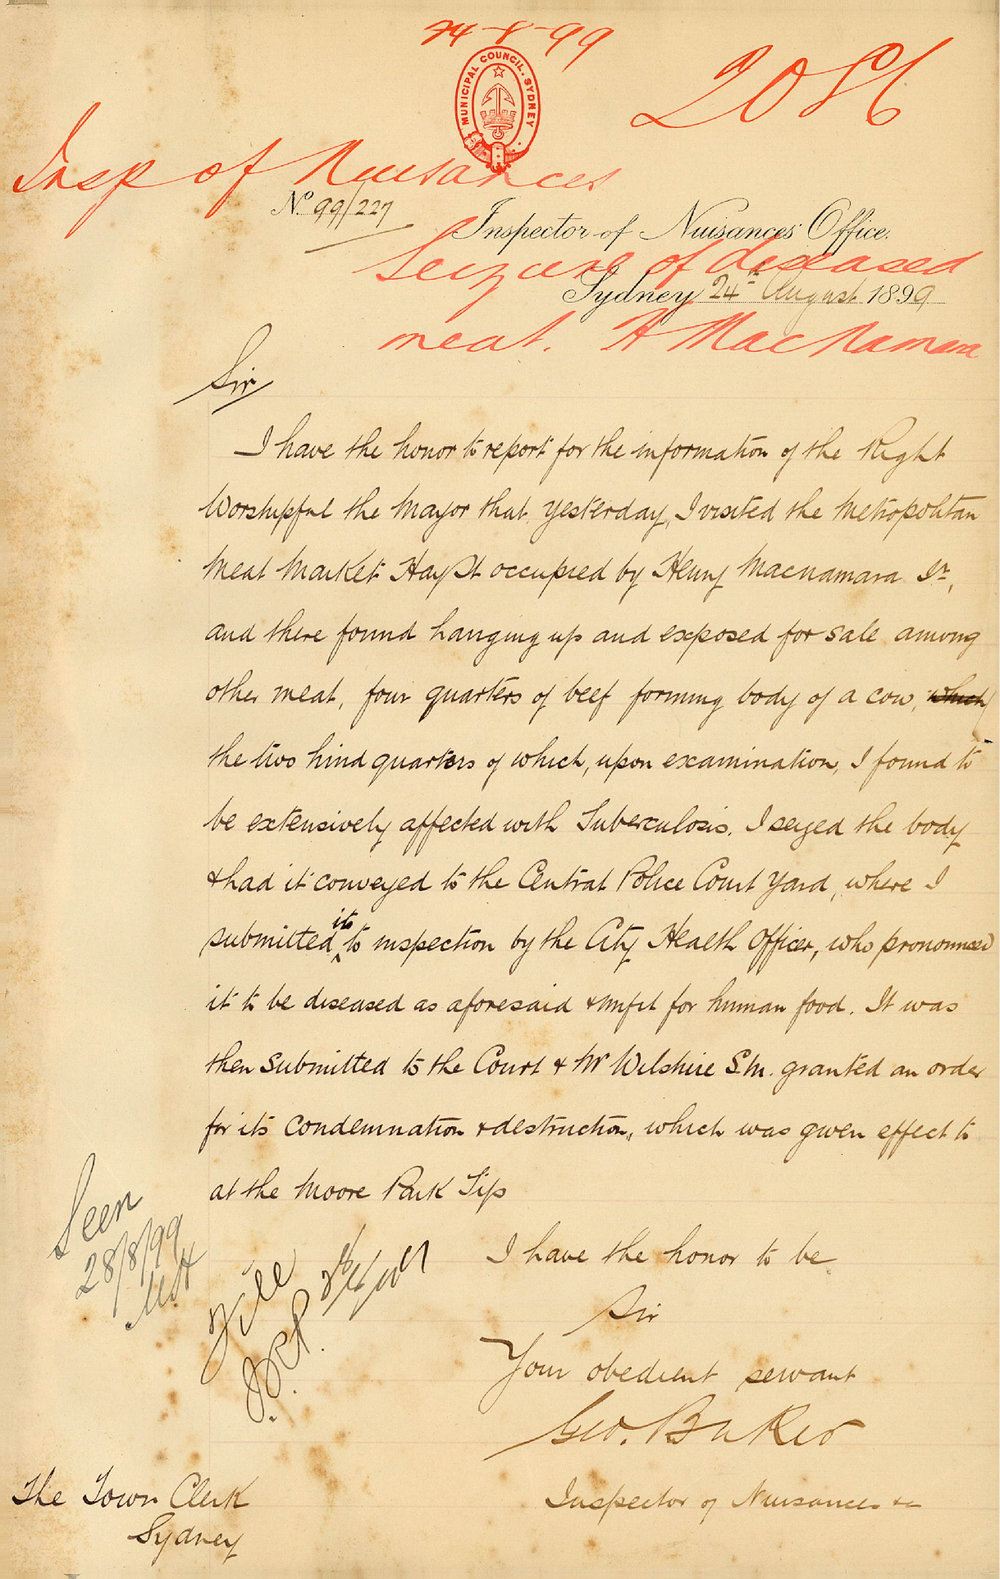 24-8-99
MUNICIPAL COUNCIL. SYDNEY
2086
Insp of Nuisances
No. 99/227
Inspector of Nuisances Office.
Seizure of diseased
Sydney 24th August 1899
meat. H MacNamara
Sir
I have the honor to report for the information of the Right
Worshipful the Mayor that yesterday, I visited the Metropolitan
Meat Market Hay St occupied by Henry Macnamara Jr.,
and there found hanging up and exposed for sale among
other meat, four quarters of beef forming body of a cow, which
the two hind quarters of which, upon examination, I found to
be extensively affected with Tuberculosis. I seized the body
& had it conveyed to the Central Police Court Yard, where I
its
submitted to inspection by the City Health Officer, who pronounced
it to be diseased as aforesaid & unfit for human food. It was
then submitted to the Court & Mr Wilshire S.M. granted an order
for its condemnation & destruction, which was given effect to
at the Moore Park Tip
Seen
28/8/99
I have the honor to be
File
Sir
Your obedient servant
Geo. Baker
Inspector of Nuisances &c
The Town Clerk
Sydney